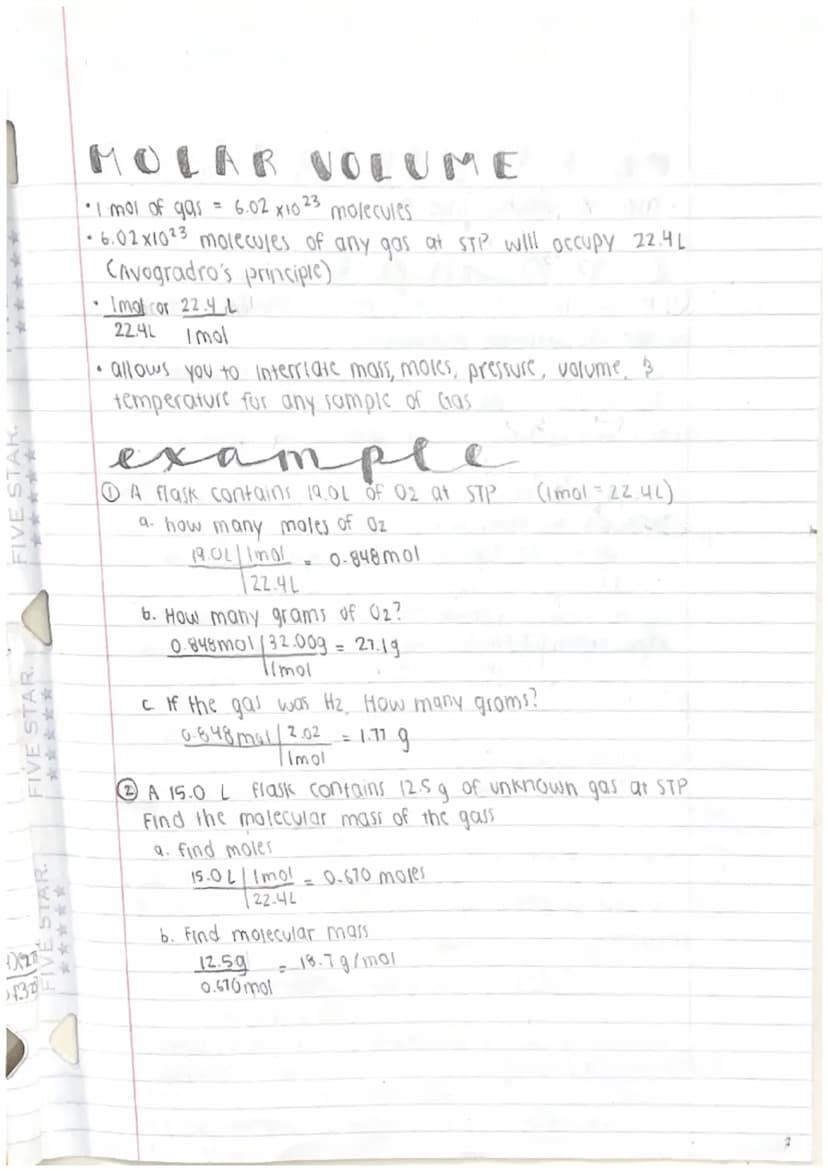 MOLAR VOLUME
• 1 mol of gas = 6.02 x10^23 molecules
• 6.02x10^23 molecules of any gas at STP will occupy 22.4L
(Avogradro's principle)
• 1mol or 22.4 L
22.4L 1mol
• allows you to interrlate mass, moles, pressure, volume, &
temperature for any sample of Gas
example
① A flask contains 19.0L of O2 at STP (1mol = 22.4L)
a. how many moles of O2
19.0L | 1mol = 0.848mol
22.4L
b. How many grams of O2?
0.848mol | 32.00g = 27.1g
1mol
c. If the gas was H2, How many grams?
0.848mol | 2.02 = 1.77 g
1mol
② A 15.0 L flask contains 12.5g of unknown gas at STP
Find the molecular mass of the gass
a. find moles
15.0L | 1mol = 0.670 moles
22.4L
b. Find molecular mass
12.5g = 18.7g/mol
0.670mol
FIVE STAR.
FIVE STAR.
FIVE STAR.